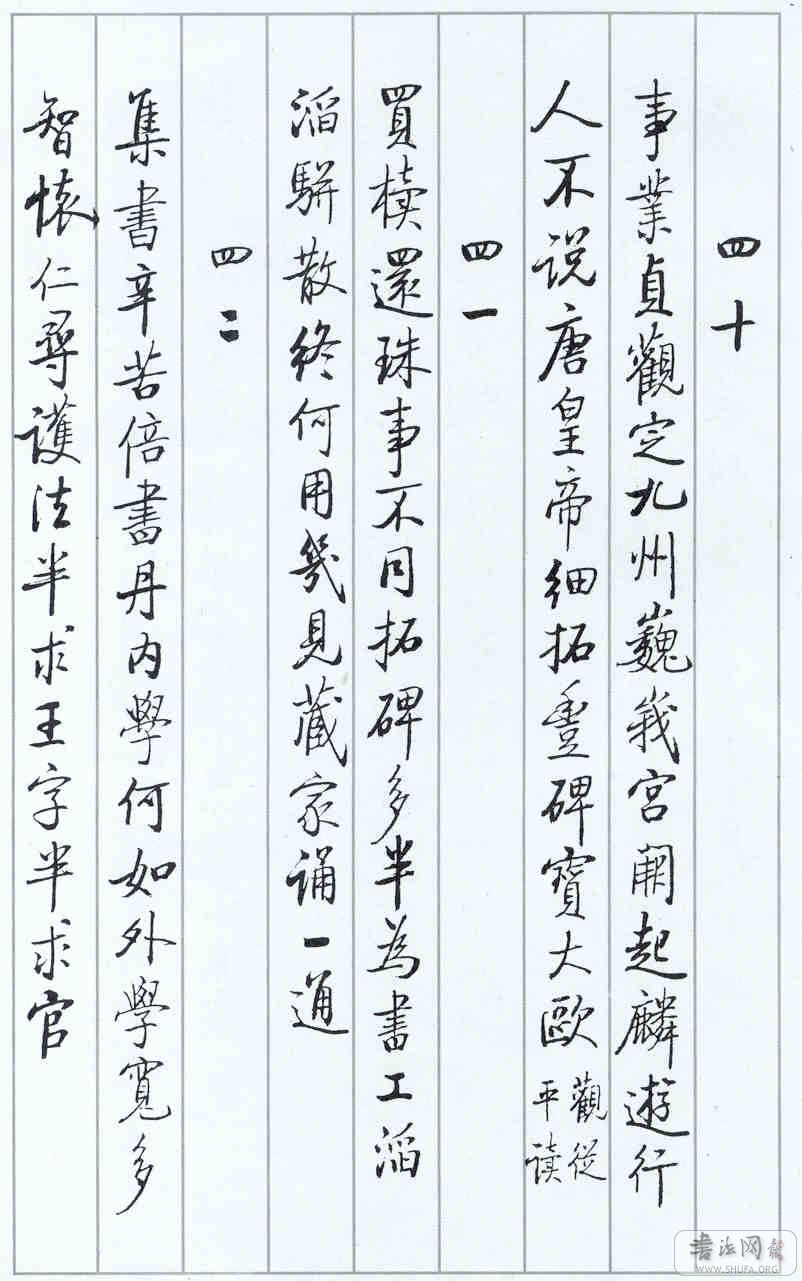 四十
事業貞觀定九州巍峩宮闕起麟遊行
人不说唐皇帝细拓豐碑寶大歐
觀從
平读
四一
買櫝還珠事不同拓碑多半為書工滔
滔駢散終何用幾見藏家誦一通
四二
集書辛苦倍書丹内學何如外學寬多
智懷仁尋護法半求王字半求官
书法网
WWW.SHUFA.ORG